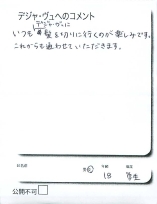 デジャ・ヴュへのコメント
デジャ・ヴュに
いつも髪を切りに行くのが楽しみです。
これからも通わせていただきます。
お名前
年齢
職業
男
18
学生
公開不可